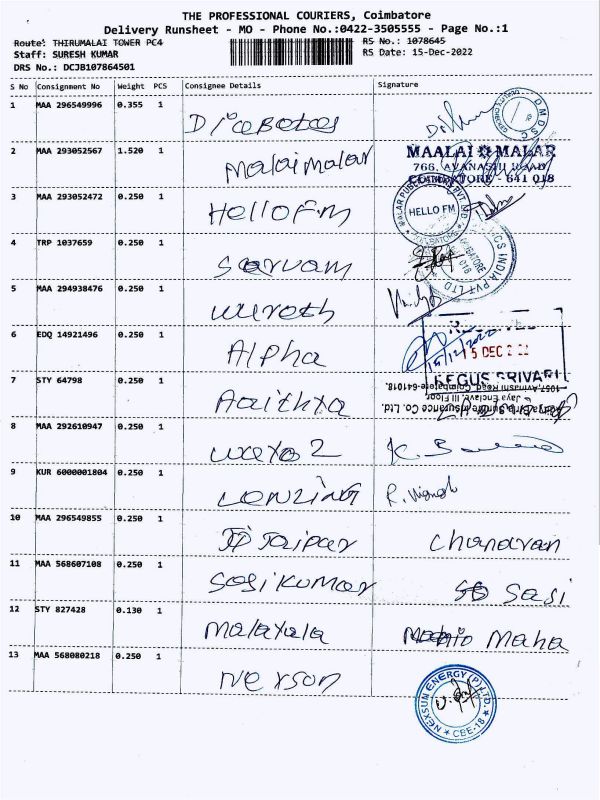 THE PROFESSIONAL COURIERS, Coimbatore
Delivery Runsheet - MO - Phone No.:0422-3505555 - Page No.:1
Route: THIRUMALAI TOWER PC4 RS No.: 1078645
Staff: SURESH KUMAR RS Date: 15-Dec-2022
DRS No.: DCJB107864501
S No Consignment No Weight PCS Consignee Details Signature
1 MAA 296549996 0.355 1 Diabetes
DMDSC
2 MAA 293052567 1.520 1 Malaimalar
MAALAI MALAR
766, AVANASHI ROAD,
COIMBATORE - 641 018
3 MAA 293052472 0.250 1 Hello Fm
HELLO FM
4 TRP 1037659 0.250 1 Sarvam
INDIA PVT LTD
5 MAA 294938476 0.250 1 wuroth
6 EDQ 14921496 0.250 1 Alpha
15/12/2022
15 DEC 2022
7 STY 64798 0.250 1 Aadithya
REGUS SRIVARI
1057, Avinashi Road, Coimbatore-641018.
Jaya Enclave, III Floor
Insurance Co. Ltd.
8 MAA 292610947 0.250 1
9 KUR 6000001804 0.250 1 Lenzing R. Vignesh
10 MAA 296549855 0.250 1 Jaipur Chandran
11 MAA 568607108 0.250 1 Sasikumar Sasi
12 STY 827428 0.130 1 malayala Maha
13 MAA 568080218 0.250 1 Nexson
NEXSUN ENERGY (P) LTD.
CBE-18